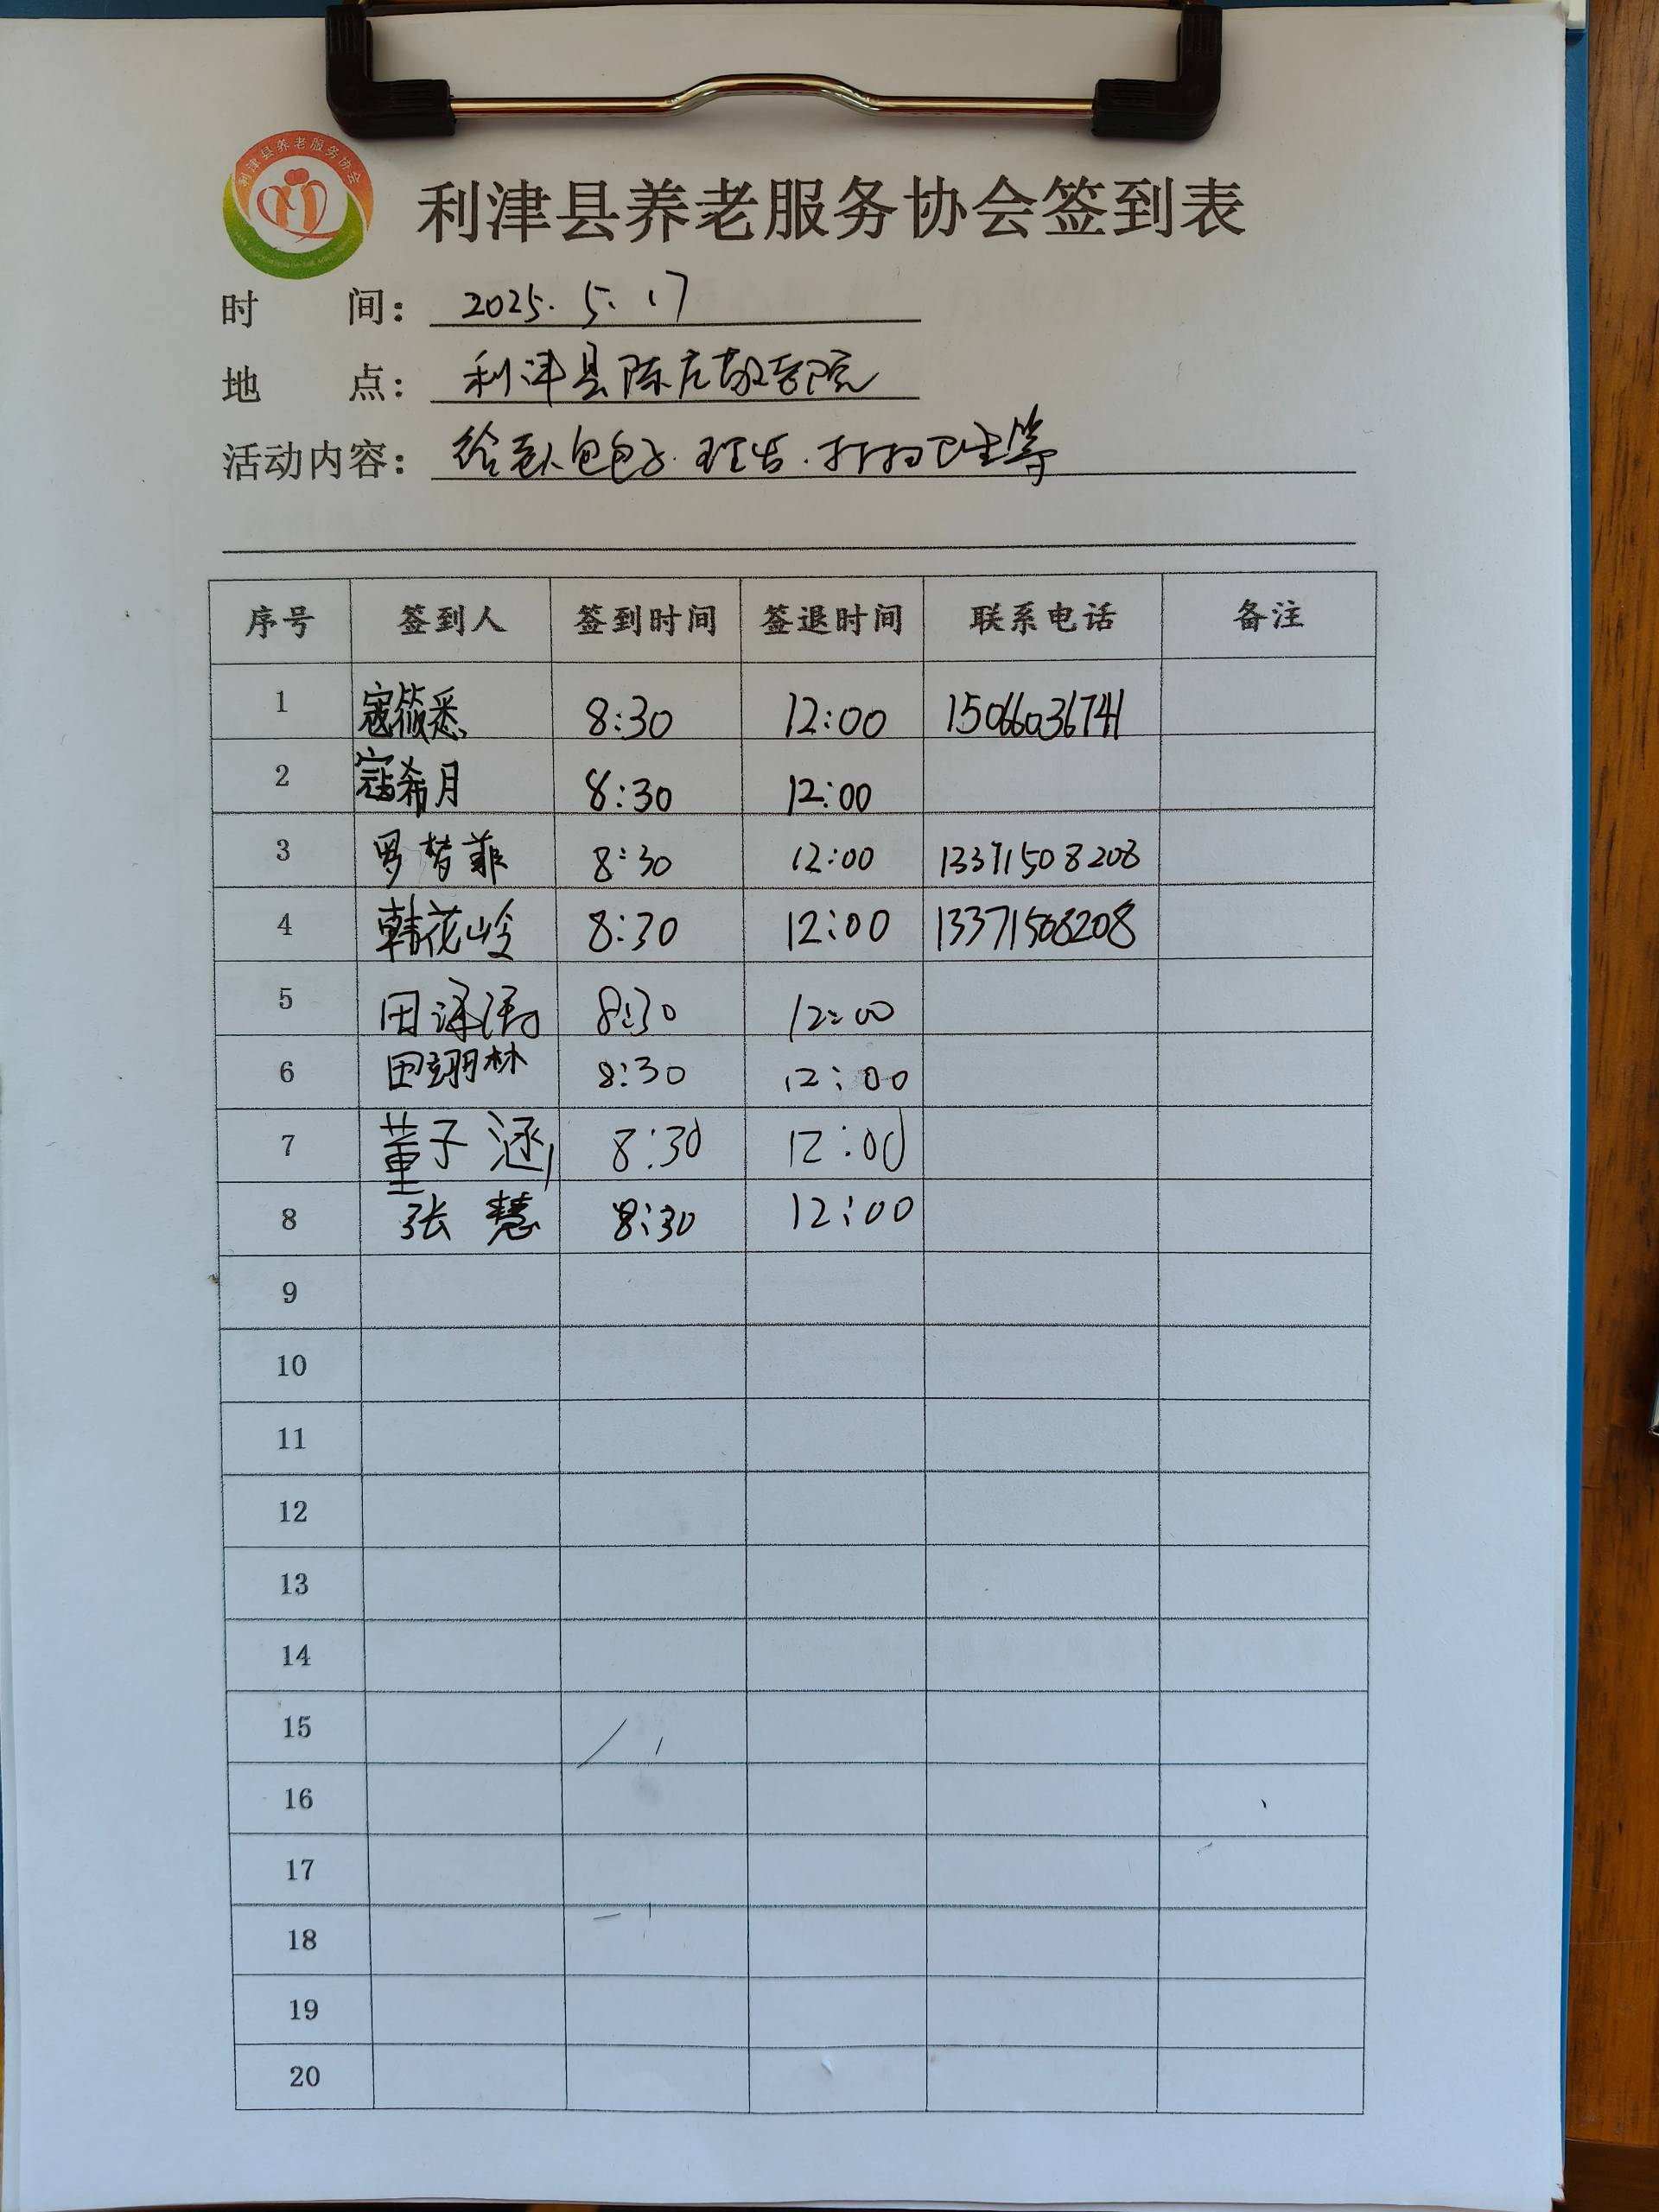 利津县养老服务协会
利津县养老服务协会签到表
时 间: 2025.5.17
地 点: 利津县陈庄敬老院
活动内容: 给老人包包子.理发.打扫卫生等
序号 签到人 签到时间 签退时间 联系电话 备注
1 寇筱悉 8:30 12:00 15066036741
2 寇希月 8:30 12:00
3 罗梦菲 8:30 12:00 13371508208
4 韩花岭 8:30 12:00 13371508208
5 田 8:30 12:00
6 田翊林 8:30 12:00
7 董子涵 8:30 12:00
8 张慧 8:30 12:00
9
10
11
12
13
14
15
16
17
18
19
20